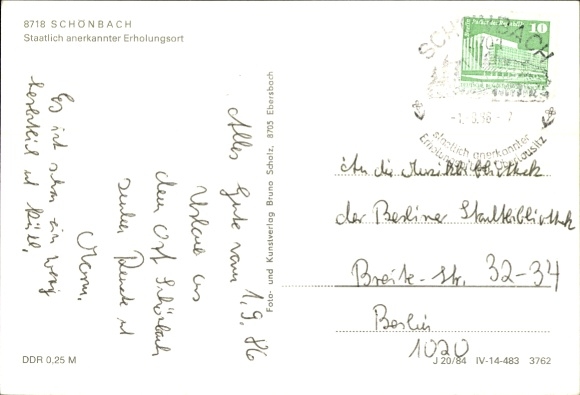 8718 SCHÖNBACH
Staatlich anerkannter Erholungsort
Alles Gute vom
1.9.86
Urlaub aus
dem Ort Schönbach
senden Renate u
Mann.
Es ist schon ein wenig
herbstlich u kühl.
Foto- und Kunstverlag Bruno Scholz, 8705 Ebersbach
10
SCHÖNBACH
staatlich anerkannter
An die Musikbibliothek
der Berliner Stadtbibliothek
Breite-Str. 32-34
Berlin
1020
DDR 0,25 M
J 20/84 IV-14-483 3762